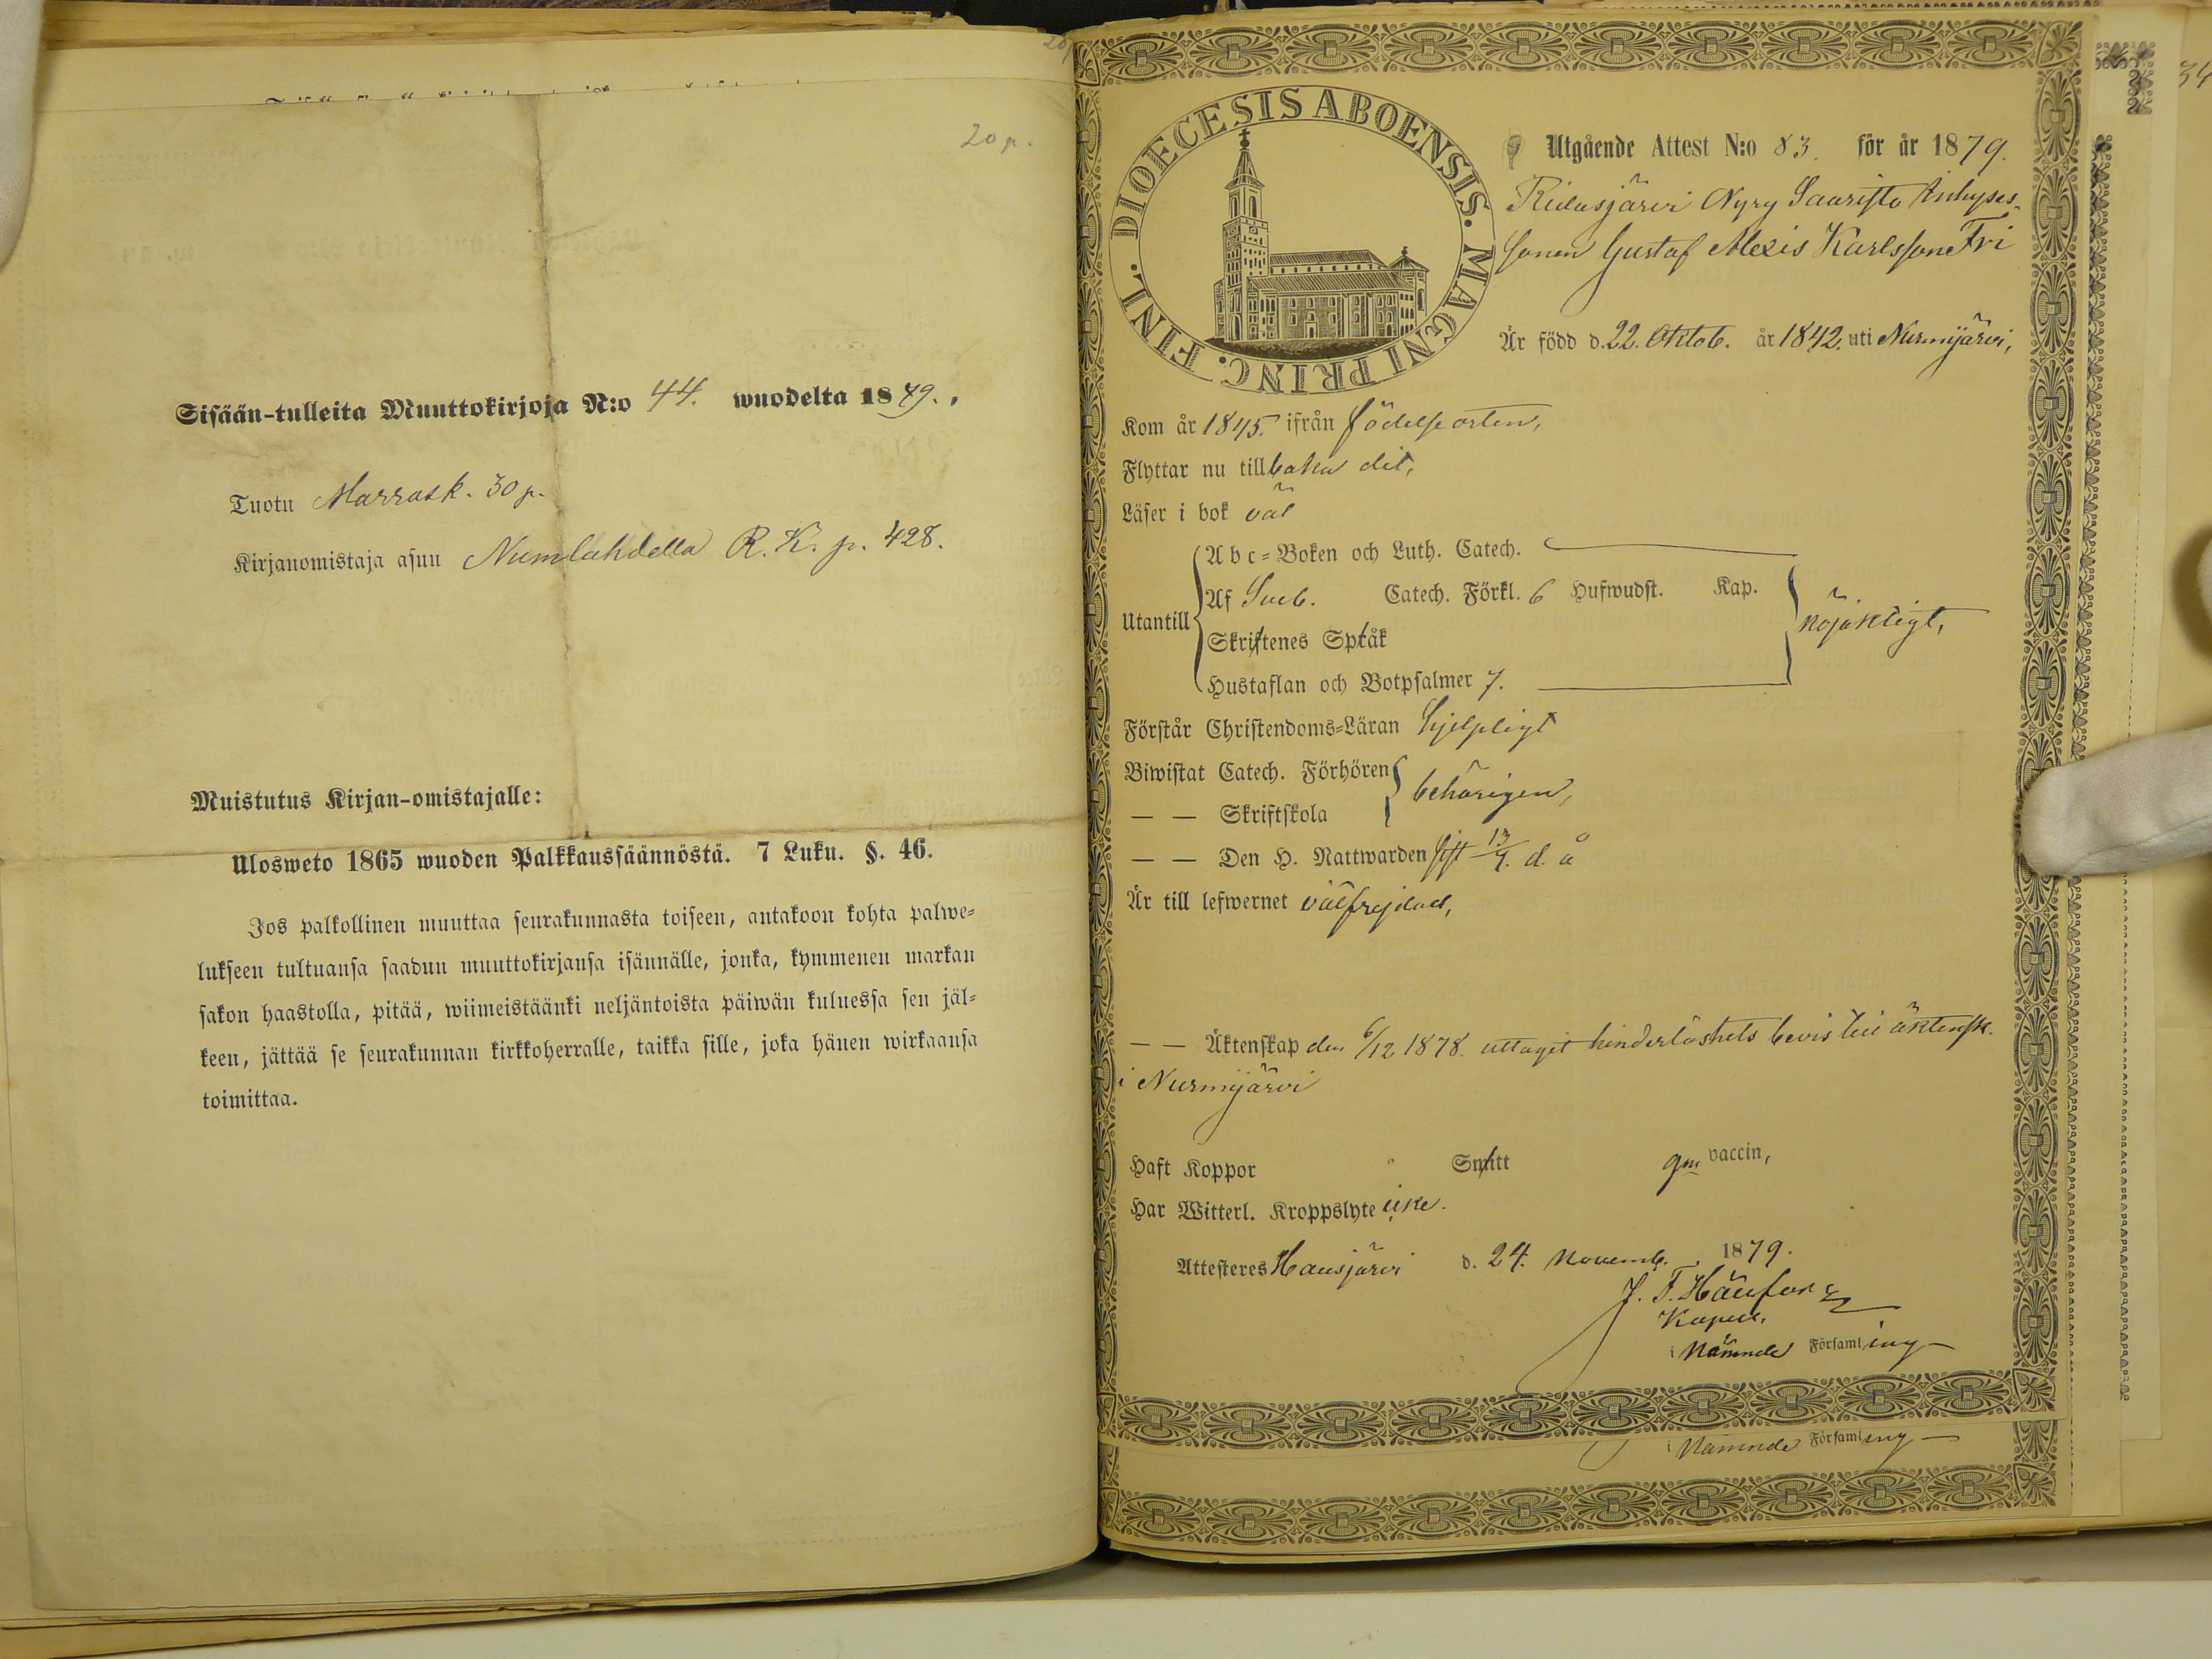 20 p.
Sisään-tulleita Muuttokirjoja N:o 44. wuodelta 1879.
Tuotu Marrask. 30 p.
Kirjanomistaja asuu Numlahdella R. K. p. 428.
Muistutus Kirjan-omistajalle:
Ulosweto 1865 wuoden Palkkaussäännöstä. 7 Luku. §. 46.
Jos palkollinen muuttaa seurakunnasta toiseen, antakoon kohta palwe-
lukseen tultuansa saadun muuttokirjansa isännälle, jonka, kymmenen markan
sakon haastolla, pitää, wiimeistäänki neljäntoista päiwän kuluessa sen jäl-
keen, jättää se seurakunnan kirkkoherralle, taikka sille, joka hänen wirkaansa
toimittaa.
34
DIOECESIS ABOENSIS. MAGNI PRINC. FINL.
Utgående Attest N:o 83. för år 1879.
Ridasjärvi Nyry Saaristo Inhyses-
sonen Gustaf Alexis Karlsson Fri
Är född d. 22. Oktob. år 1842. uti Nurmijärvi,
Kom år 1845. ifrån födelseorten,
Flyttar nu tillbaka dit,
Läser i bok väl
Utantill
A b c-Boken och Luth. Catech.
Af Sveb. Catech. Förkl. 6 Hufwudst. Kap.
Skriftenes Språk
Hustaflan och Botpsalmer 7.
nöjaktigt,
Förstår Christendoms-Läran hjelpligt
Biwistat Catech. Förhören
— — Skriftskola
behörigen,
— — Den H. Nattwarden sist 13/7. d. å
Är till lefwernet välfrejdad,
— — Äktenskap den 6/12 1878. uttagit hinderlöshets bevis till äktensk.
i Nurmijärvi
Haft Koppor Smitt gm vaccin,
Har Witterl. Kroppslyte icke.
Attesteres Hausjärvi d. 24. Novemb. 1879.
J. F. Hänfors
Kapell.
i Nämnde Församling
i Nämnde Församling